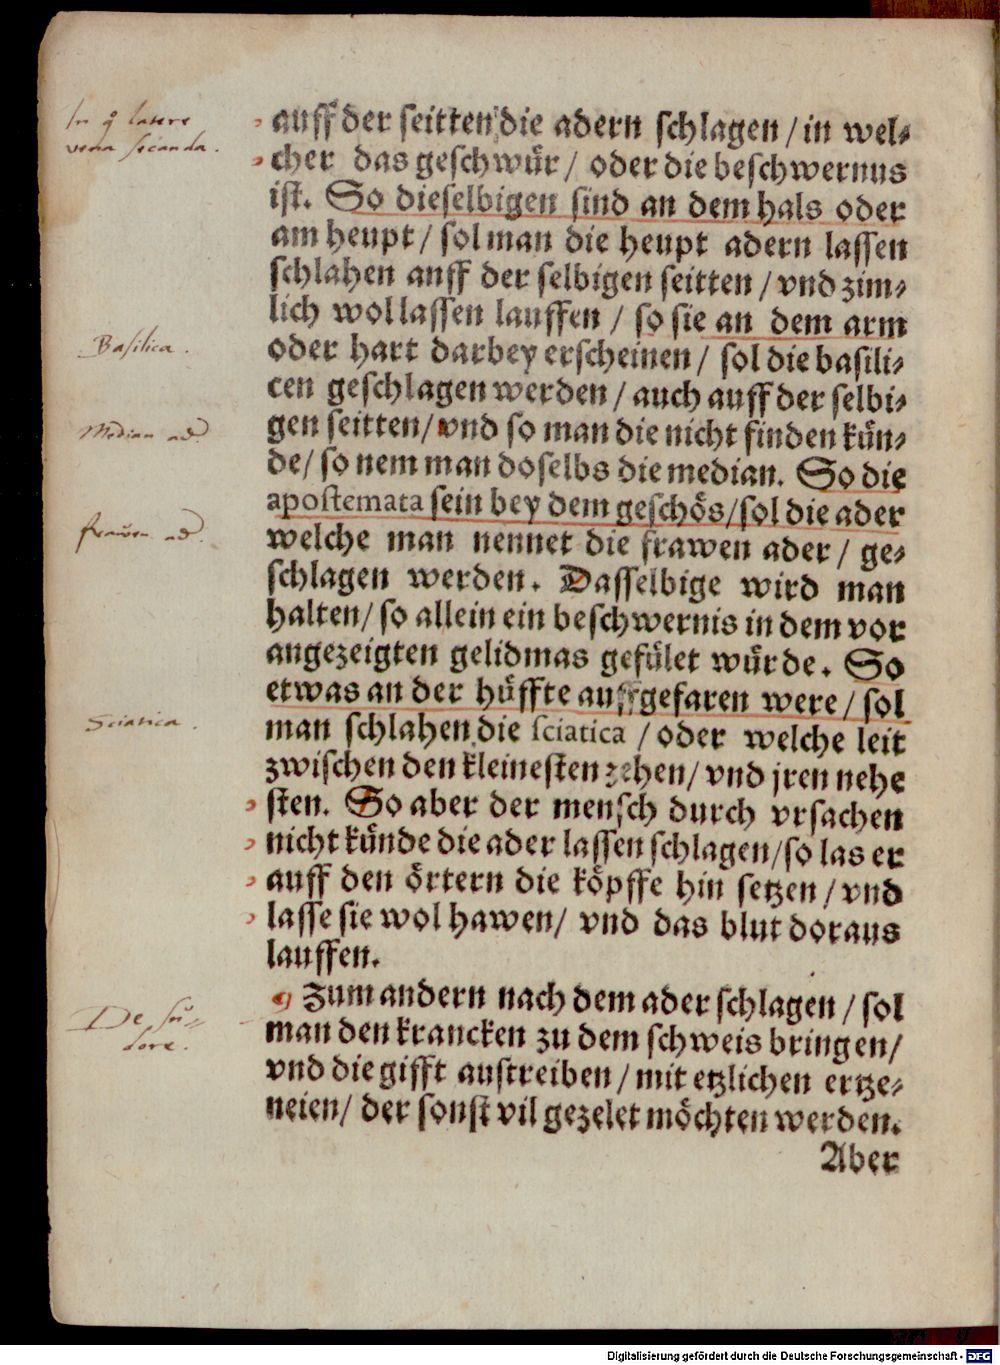 In q̃ latere
vena secanda.
auff der seitten die adern schlagen / in wel⸗
cher das geschwür / oder die beschwernus
ist. So dieselbigen sind an dem hals oder
am heupt / sol man die heupt adern lassen
schlahen auff der selbigen seitten / vnd zim⸗
lich wol lassen lauffen / so sie an dem arm
Basilica.
oder hart darbey erscheinen / sol die basili⸗
cen geschlagen werden / auch auff der selbi⸗
Median ad
gen seitten / vnd so man die nicht finden kün⸗
de / so nem man doselbs die median. So die
apostemata sein bey dem geschös / sol die ader
frawen ad.
welche man nennet die frawen ader / ge⸗
schlagen werden. Dasselbige wird man
halten / so allein ein beschwernis in dem vor
angezeigten gelidmas gefület würde. So
etwas an der hüffte auffgefaren were / sol
Sciatica.
man schlahen die sciatica / oder welche leit
zwischen den kleinesten zehen / vnd jren nehe
sten. So aber der mensch durch vrsachen
nicht künde die ader lassen schlagen / so las er
auff den örtern die köpffe hin setzen / vnd
lasse sie wol hawen / vnd das blut doraus
lauffen.
De su⸗
dore.
Zum andern nach dem ader schlagen / sol
man den krancken zu dem schweis bringen /
vnd die gifft austreiben / mit etzlichen ertze⸗
neien / der sonst vil gezelet möchten werden.
Aber
Digitalisierung gefördert durch die Deutsche Forschungsgemeinschaft - DFG